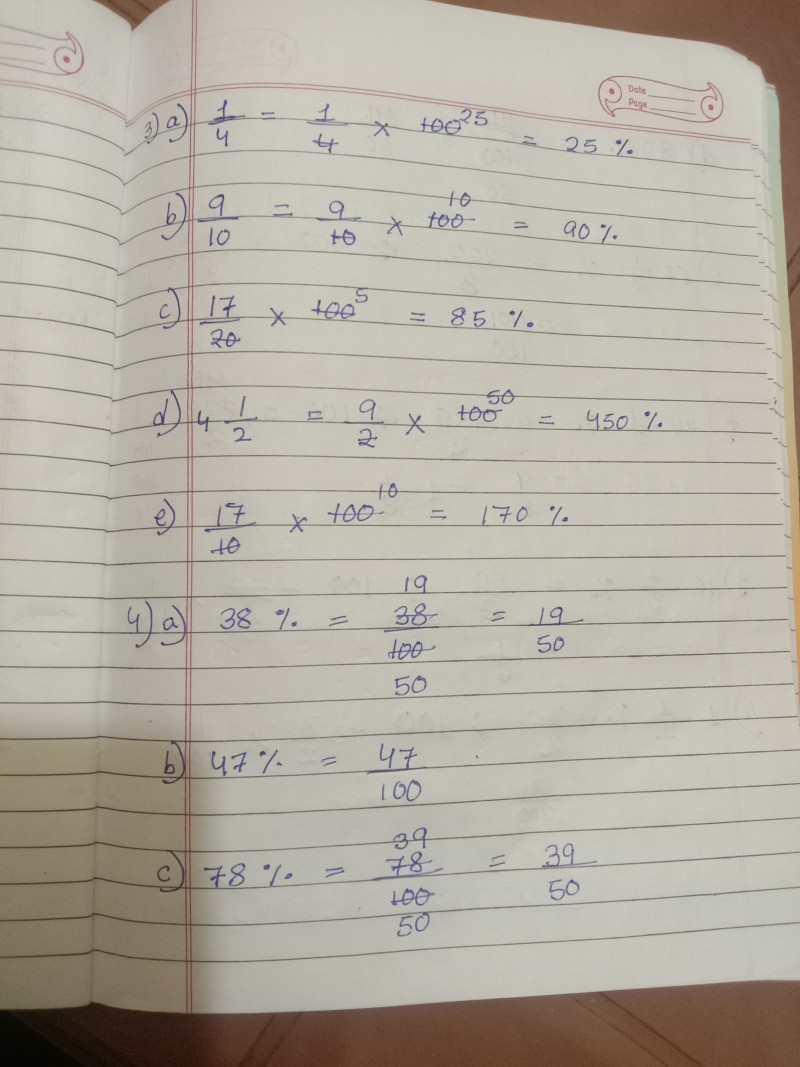 Date
Page
3) a) 1/4 = 1/4 × 100 25 = 25 %
b) 9/10 = 9/10 × 100 10 = 90 %
c) 17/20 × 100 5 = 85 %
d) 4 1/2 = 9/2 × 100 50 = 450 %
e) 17/10 × 100 10 = 170 %
19
4) a) 38 % = 38/100 = 19/50
50
b) 47 % = 47/100
39
c) 78 % = 78/100 = 39/50
50